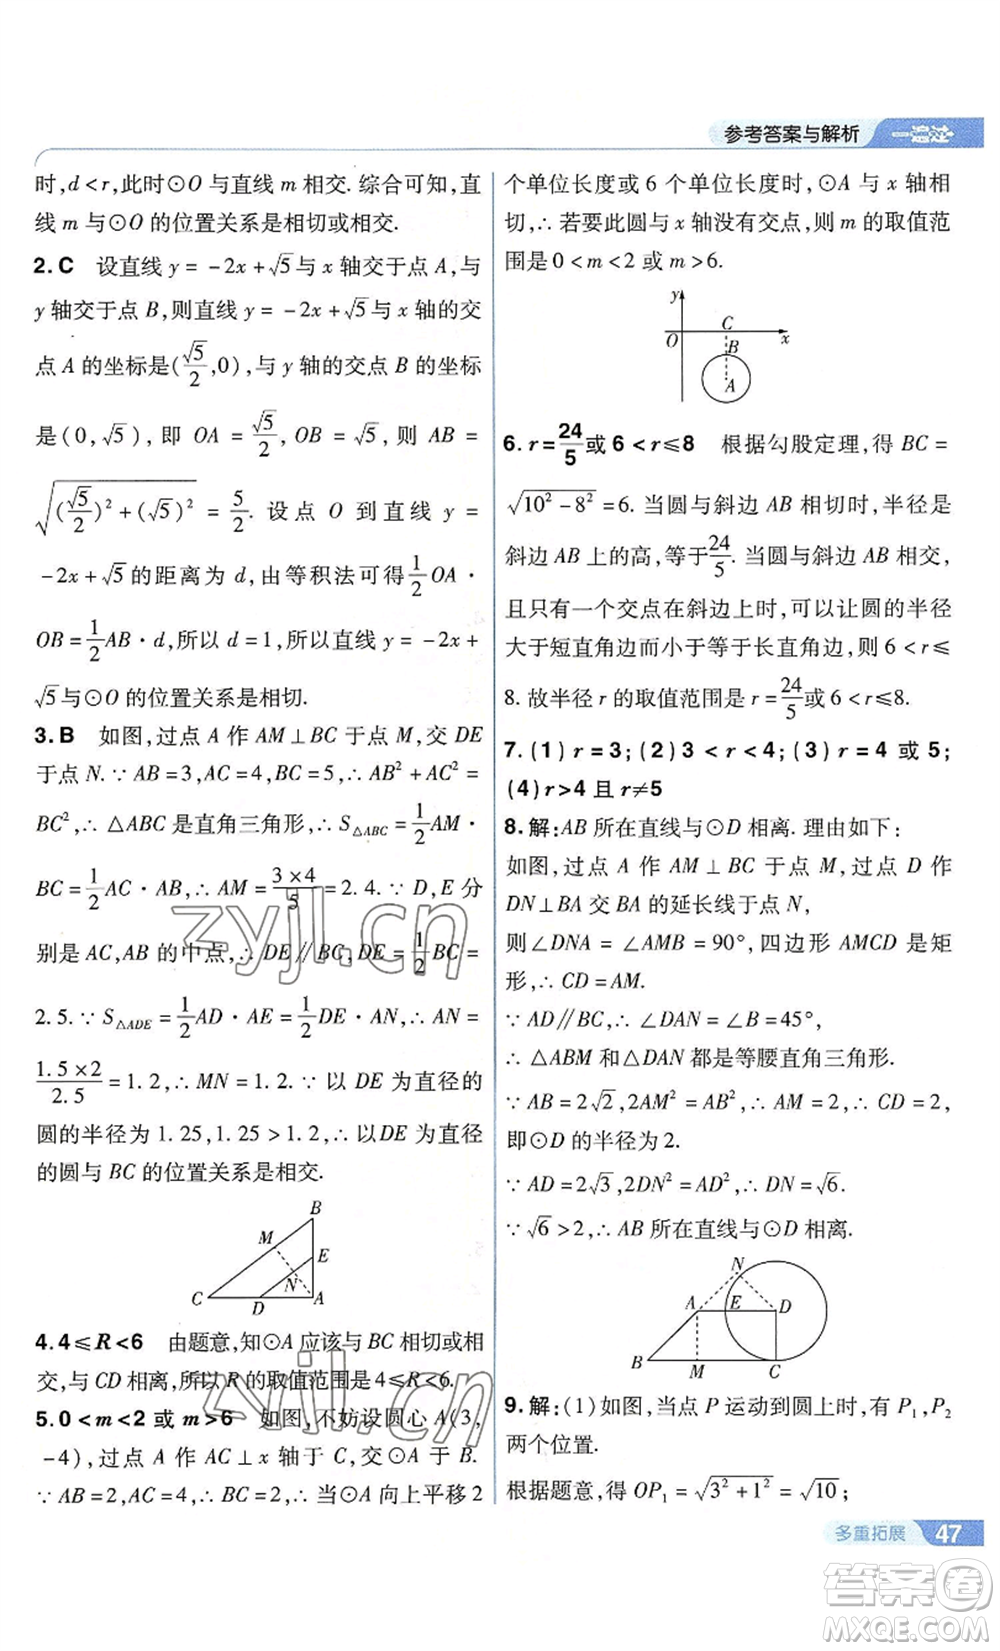 参考答案与解析
时,d<r,此时⊙O 与直线 m 相交. 综合可知,直
线 m 与⊙O 的位置关系是相切或相交.
2.C 设直线 y=-2x+√5与 x 轴交于点 A,与
y 轴交于点 B,则直线 y=-2x+√5与 x 轴的交
点 A 的坐标是(√5/2,0),与 y 轴的交点 B 的坐标
是(0,√5),即 OA=√5/2,OB=√5,则 AB=
√((√5/2)²+(√5)²)=5/2. 设点 O 到直线 y=
-2x+√5的距离为 d,由等积法可得1/2OA·
OB=1/2AB·d,所以 d=1,所以直线 y=-2x+
√5与⊙O 的位置关系是相切.
3.B 如图,过点 A 作 AM⊥BC 于点 M,交 DE
于点 N.∵AB=3,AC=4,BC=5,∴AB²+AC²=
BC²,∴△ABC 是直角三角形,∴S△ABC=1/2AM·
BC=1/2AC·AB,∴AM=(3×4)/5=2.4.∵D,E 分
别是 AC,AB 的中点,∴DE∥BC,∴DE=1/2BC=
2.5.∵S△ADE=1/2AD·AE=1/2DE·AN,∴AN=
(1.5×2)/2.5=1.2,∴MN=1.2.∵以 DE 为直径的
圆的半径为 1.25,1.25>1.2,∴以DE 为直径
的圆与 BC 的位置关系是相交.
B
M
E
N
C D A
4.4≤R<6 由题意,知⊙A 应该与 BC 相切或相
交,与 CD 相离,所以 R 的取值范围是 4≤R<6.
5.0<m<2 或 m>6 如图,不妨设圆心 A(3,
-4),过点 A 作 AC⊥x 轴于 C,交⊙A 于 B.
∵AB=2,AC=4,∴BC=2,∴当⊙A 向上平移 2
个单位长度或 6 个单位长度时,⊙A 与 x 轴相
切,∴若要此圆与 x 轴没有交点,则 m 的取值范
围是 0<m<2 或 m>6.
y
C
O x
B
A
6.r=24/5或 6<r≤8 根据勾股定理,得 BC=
√(10²-8²)=6. 当圆与斜边 AB 相切时,半径是
斜边 AB 上的高,等于24/5. 当圆与斜边 AB 相交,
且只有一个交点在斜边上时,可以让圆的半径
大于短直角边而小于等于长直角边,则 6<r≤
8. 故半径 r 的取值范围是 r=24/5或 6<r≤8.
7.(1)r=3;(2)3<r<4;(3)r=4 或 5;
(4)r>4 且 r≠5
8.解:AB 所在直线与⊙D 相离. 理由如下:
如图,过点 A 作 AM⊥BC 于点 M,过点 D 作
DN⊥BA 交 BA 的延长线于点 N,
则∠DNA=∠AMB=90°,四边形 AMCD 是矩
形,∴CD=AM.
∵AD∥BC,∴∠DAN=∠B=45°,
∴△ABM 和△DAN 都是等腰直角三角形.
∵AB=2√2,2AM²=AB²,∴AM=2,∴CD=2,
即⊙D 的半径为 2.
∵AD=2√3,2DN²=AD²,∴DN=√6.
∵√6>2,∴AB 所在直线与⊙D 相离.
N
A E D
B M C
9.解:(1)如图,当点 P 运动到圆上时,有 P₁,P₂
两个位置.
根据题意,得 OP₁=√(3²+1²)=√10;
多重拓展 47
zyjl.cn
zyjl.cn
答案卷
MXQE.COM